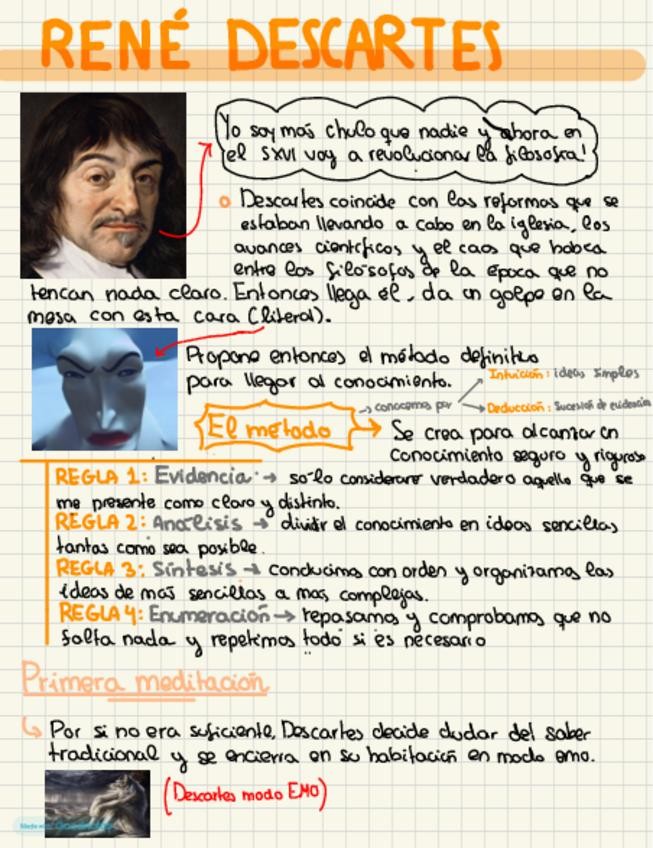 RENÉ DESCARTES
Yo soy más chulo que nadie y ahora en
el SXVI voy a revolucionar la filosofía!
Descartes coincide con las reformas que se
estaban llevando a cabo en la iglesia, los
avances científicos y el caos que había
entre los filósofos de la época que no
tenían nada claro. Entonces llega él, da un golpe en la
mesa con esta cara (literal).
Propone entonces el método definitivo
para llegar al conocimiento.
Intuición: ideas simples
→ conocemos por
Deducción: Sucesión de evidencias
El método
Se crea para alcanzar un
conocimiento seguro y riguroso
REGLA 1: Evidencia → sólo considerare verdadero aquello que se
me presente como claro y distinto.
REGLA 2: Análisis → dividir el conocimiento en ideas sencillas
tantas como sea posible.
REGLA 3: Síntesis → conducimos con orden y organizamos las
ideas de mas sencillas a mas complejas.
REGLA 4: Enumeración → repasamos y comprobamos que no
falta nada y repetimos todo si es necesario
Primera meditación
Por si no era suficiente, Descartes decide dudar del saber
tradicional y se encierra en su habitación en modo emo.
(Descartes modo EMO)